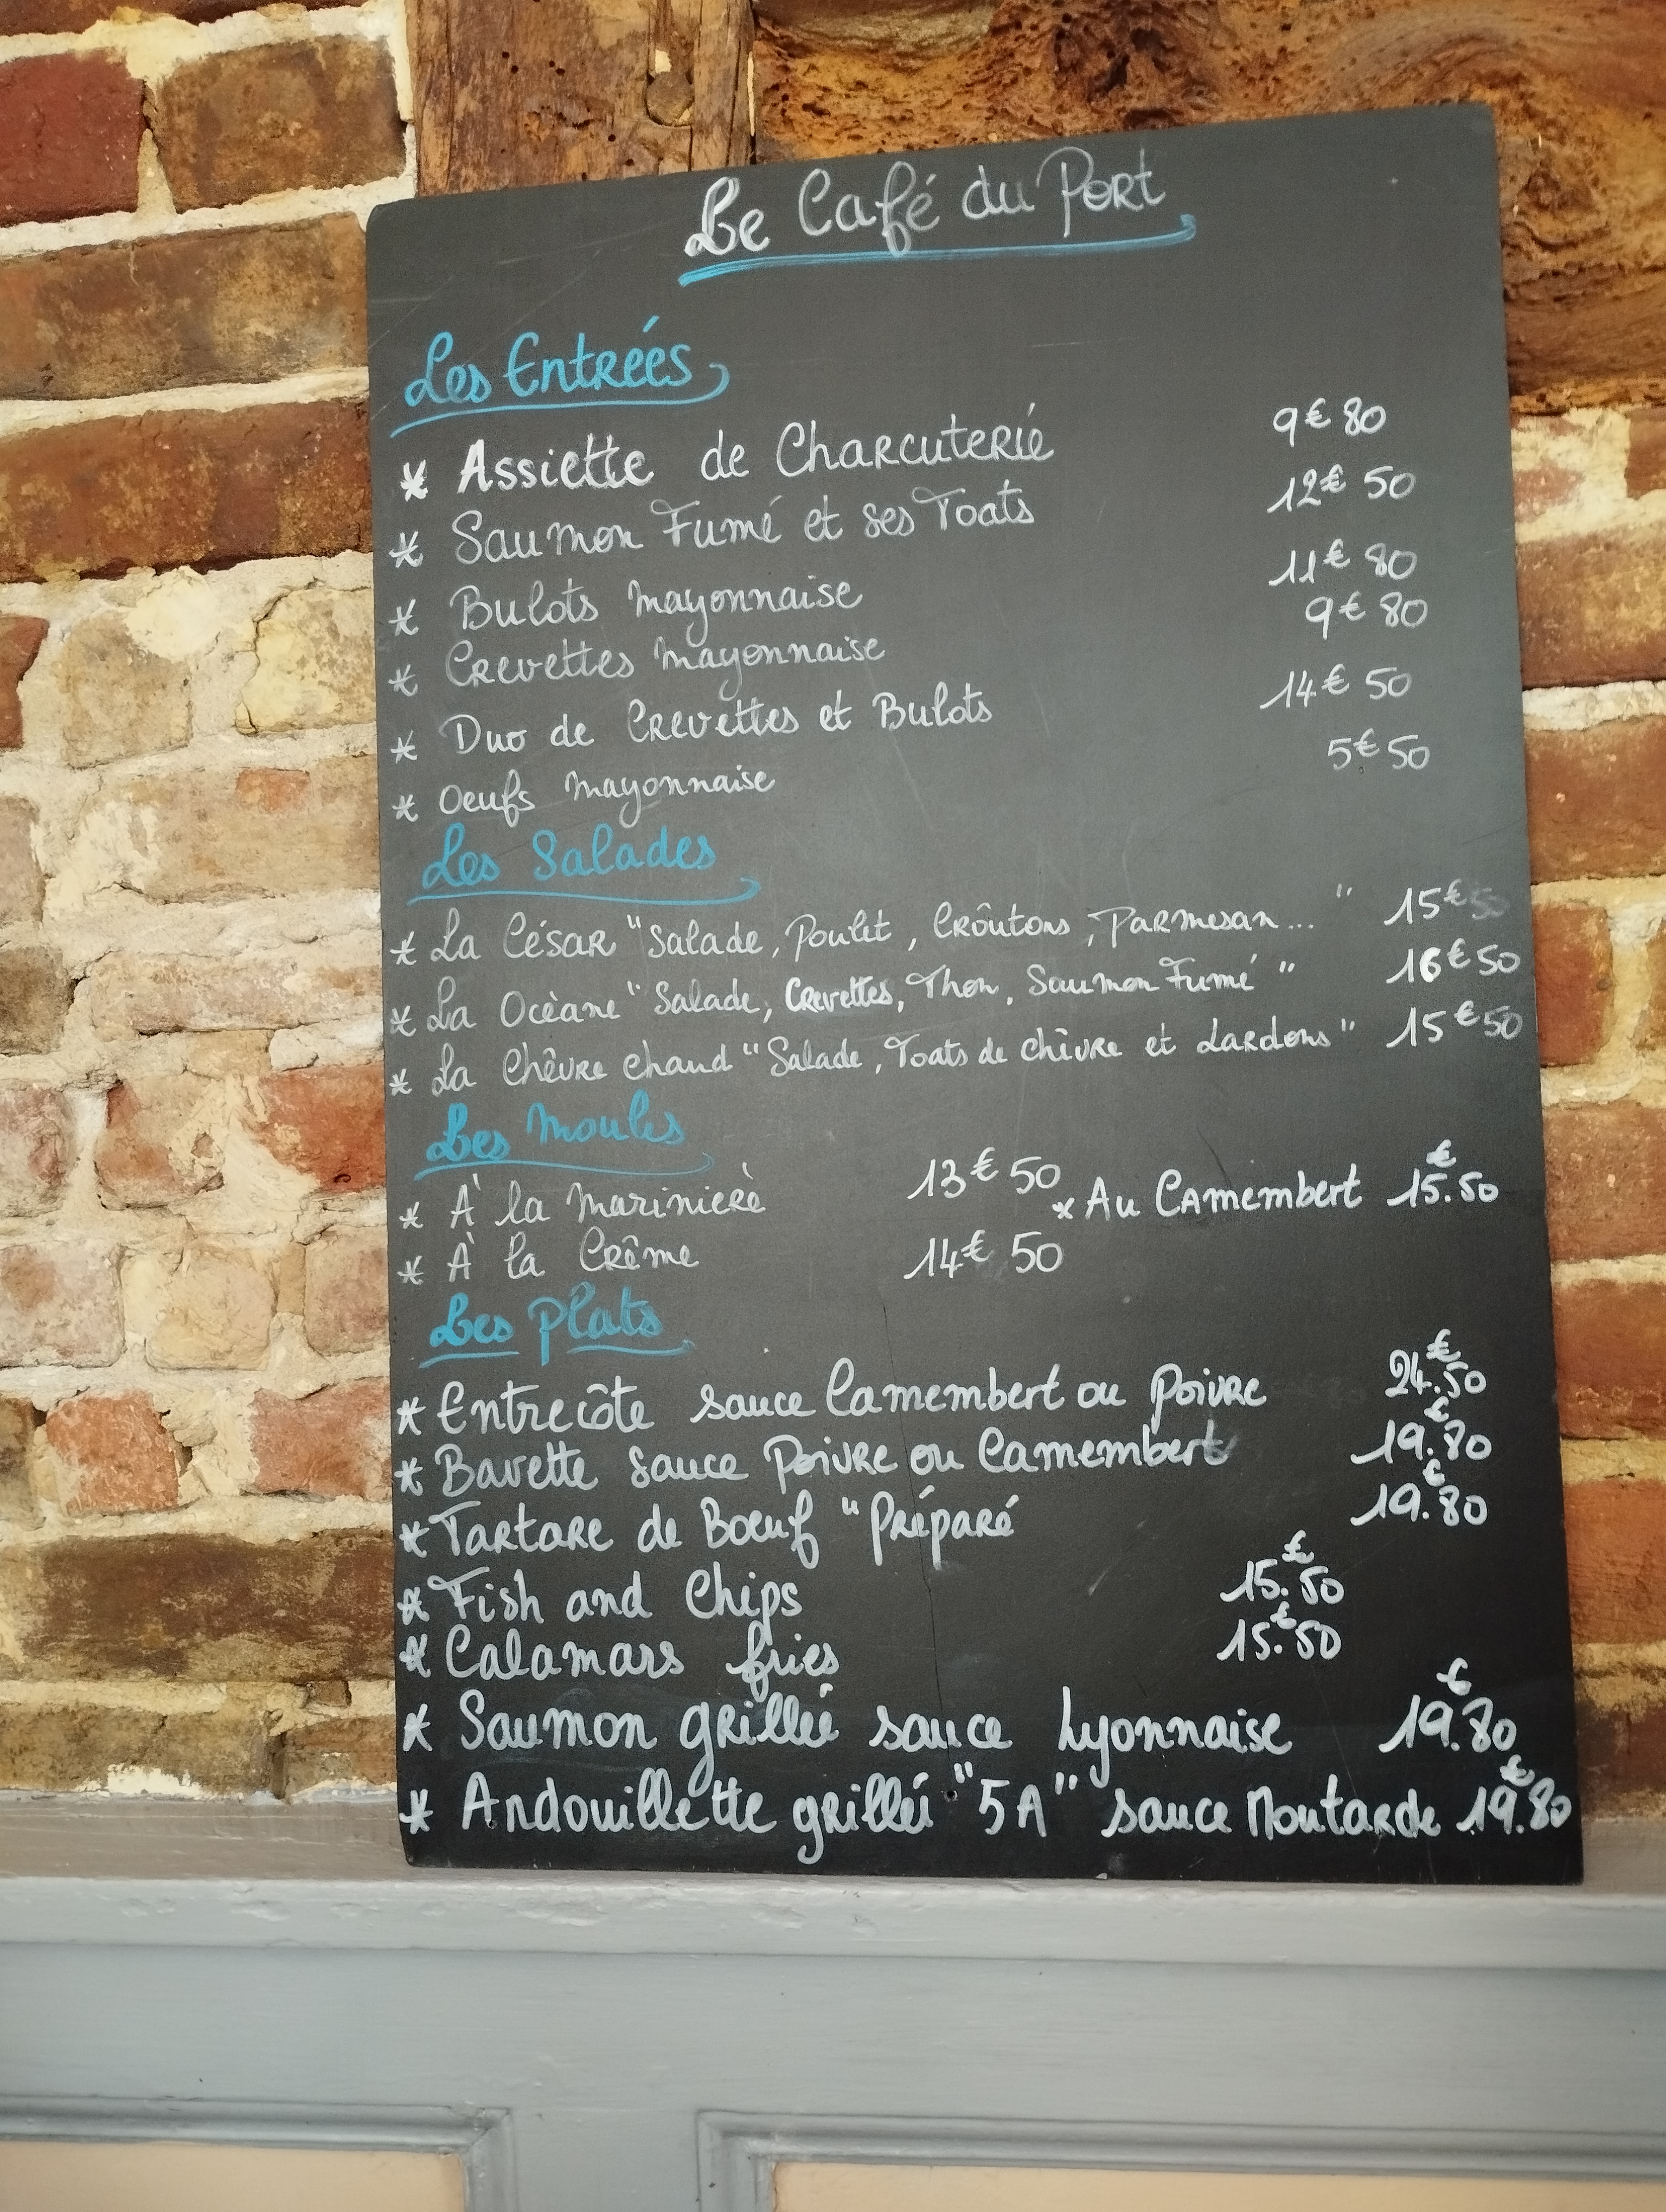 Le Café du Port
Les Entrées
* Assiette de Charcuterie 9€80
* Saumon Fumé et ses Toats 12€50
* Bulots mayonnaise 11€80
* Crevettes mayonnaise 9€80
* Duo de Crevettes et Bulots 14€50
* Oeufs mayonnaise 5€50
Les Salades
* La César "Salade, Poulet, Crôutons, Parmesan..." 15€50
* La Ocèane "Salade, Crevettes, Thon, Saumon Fumé" 16€50
* La Chêvre chaud "Salade, Toats de chèvre et Lardons" 15€50
Les Moules
* À la Marinierè 13€50 * Au Camembert 15.€50
* À la Crême 14€50
Les Plats
* Entrecôte sauce Camembert ou Poivre 24.€50
* Bavette sauce Poivre ou Camembert 19.€80
* Tartare de Boeuf "Préparé 19.€80
* Fish and Chips 15.€50
* Calamars fries 15.€50
* Saumon grillé sauce Lyonnaise 19.€80
* Andouillette grillé "5A" sauce Moutarde 19.€80